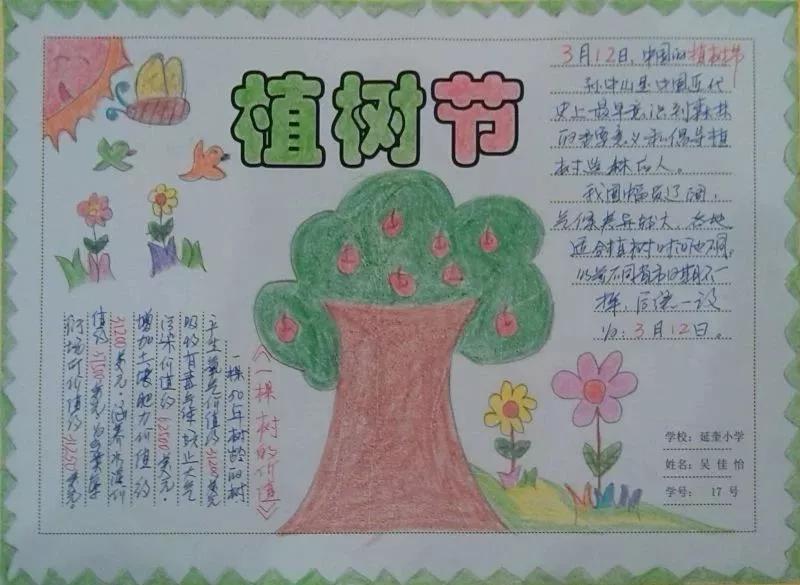 植树节
3月12日,中国的植树节
孙中山是中国近代
史上最早意识到森林
的重要意义和倡导植
树造林的人。
我国幅员辽阔,
气候差异较大,各地
适合植树时间也不同,
不同省市日期不一
样,后统一设
为:3月12日。
《一棵树的价值》
一棵50年树龄的树
产生氧气价值约31200美元
吸收有毒气体防止大气
污染价值约62500美元
增加土壤肥力价值约
31200美元,涵养水源价
值约37500美元,为鸟类
价值约31250美元。
学校: 延奎小学
姓名: 吴佳怡
学号: 17号